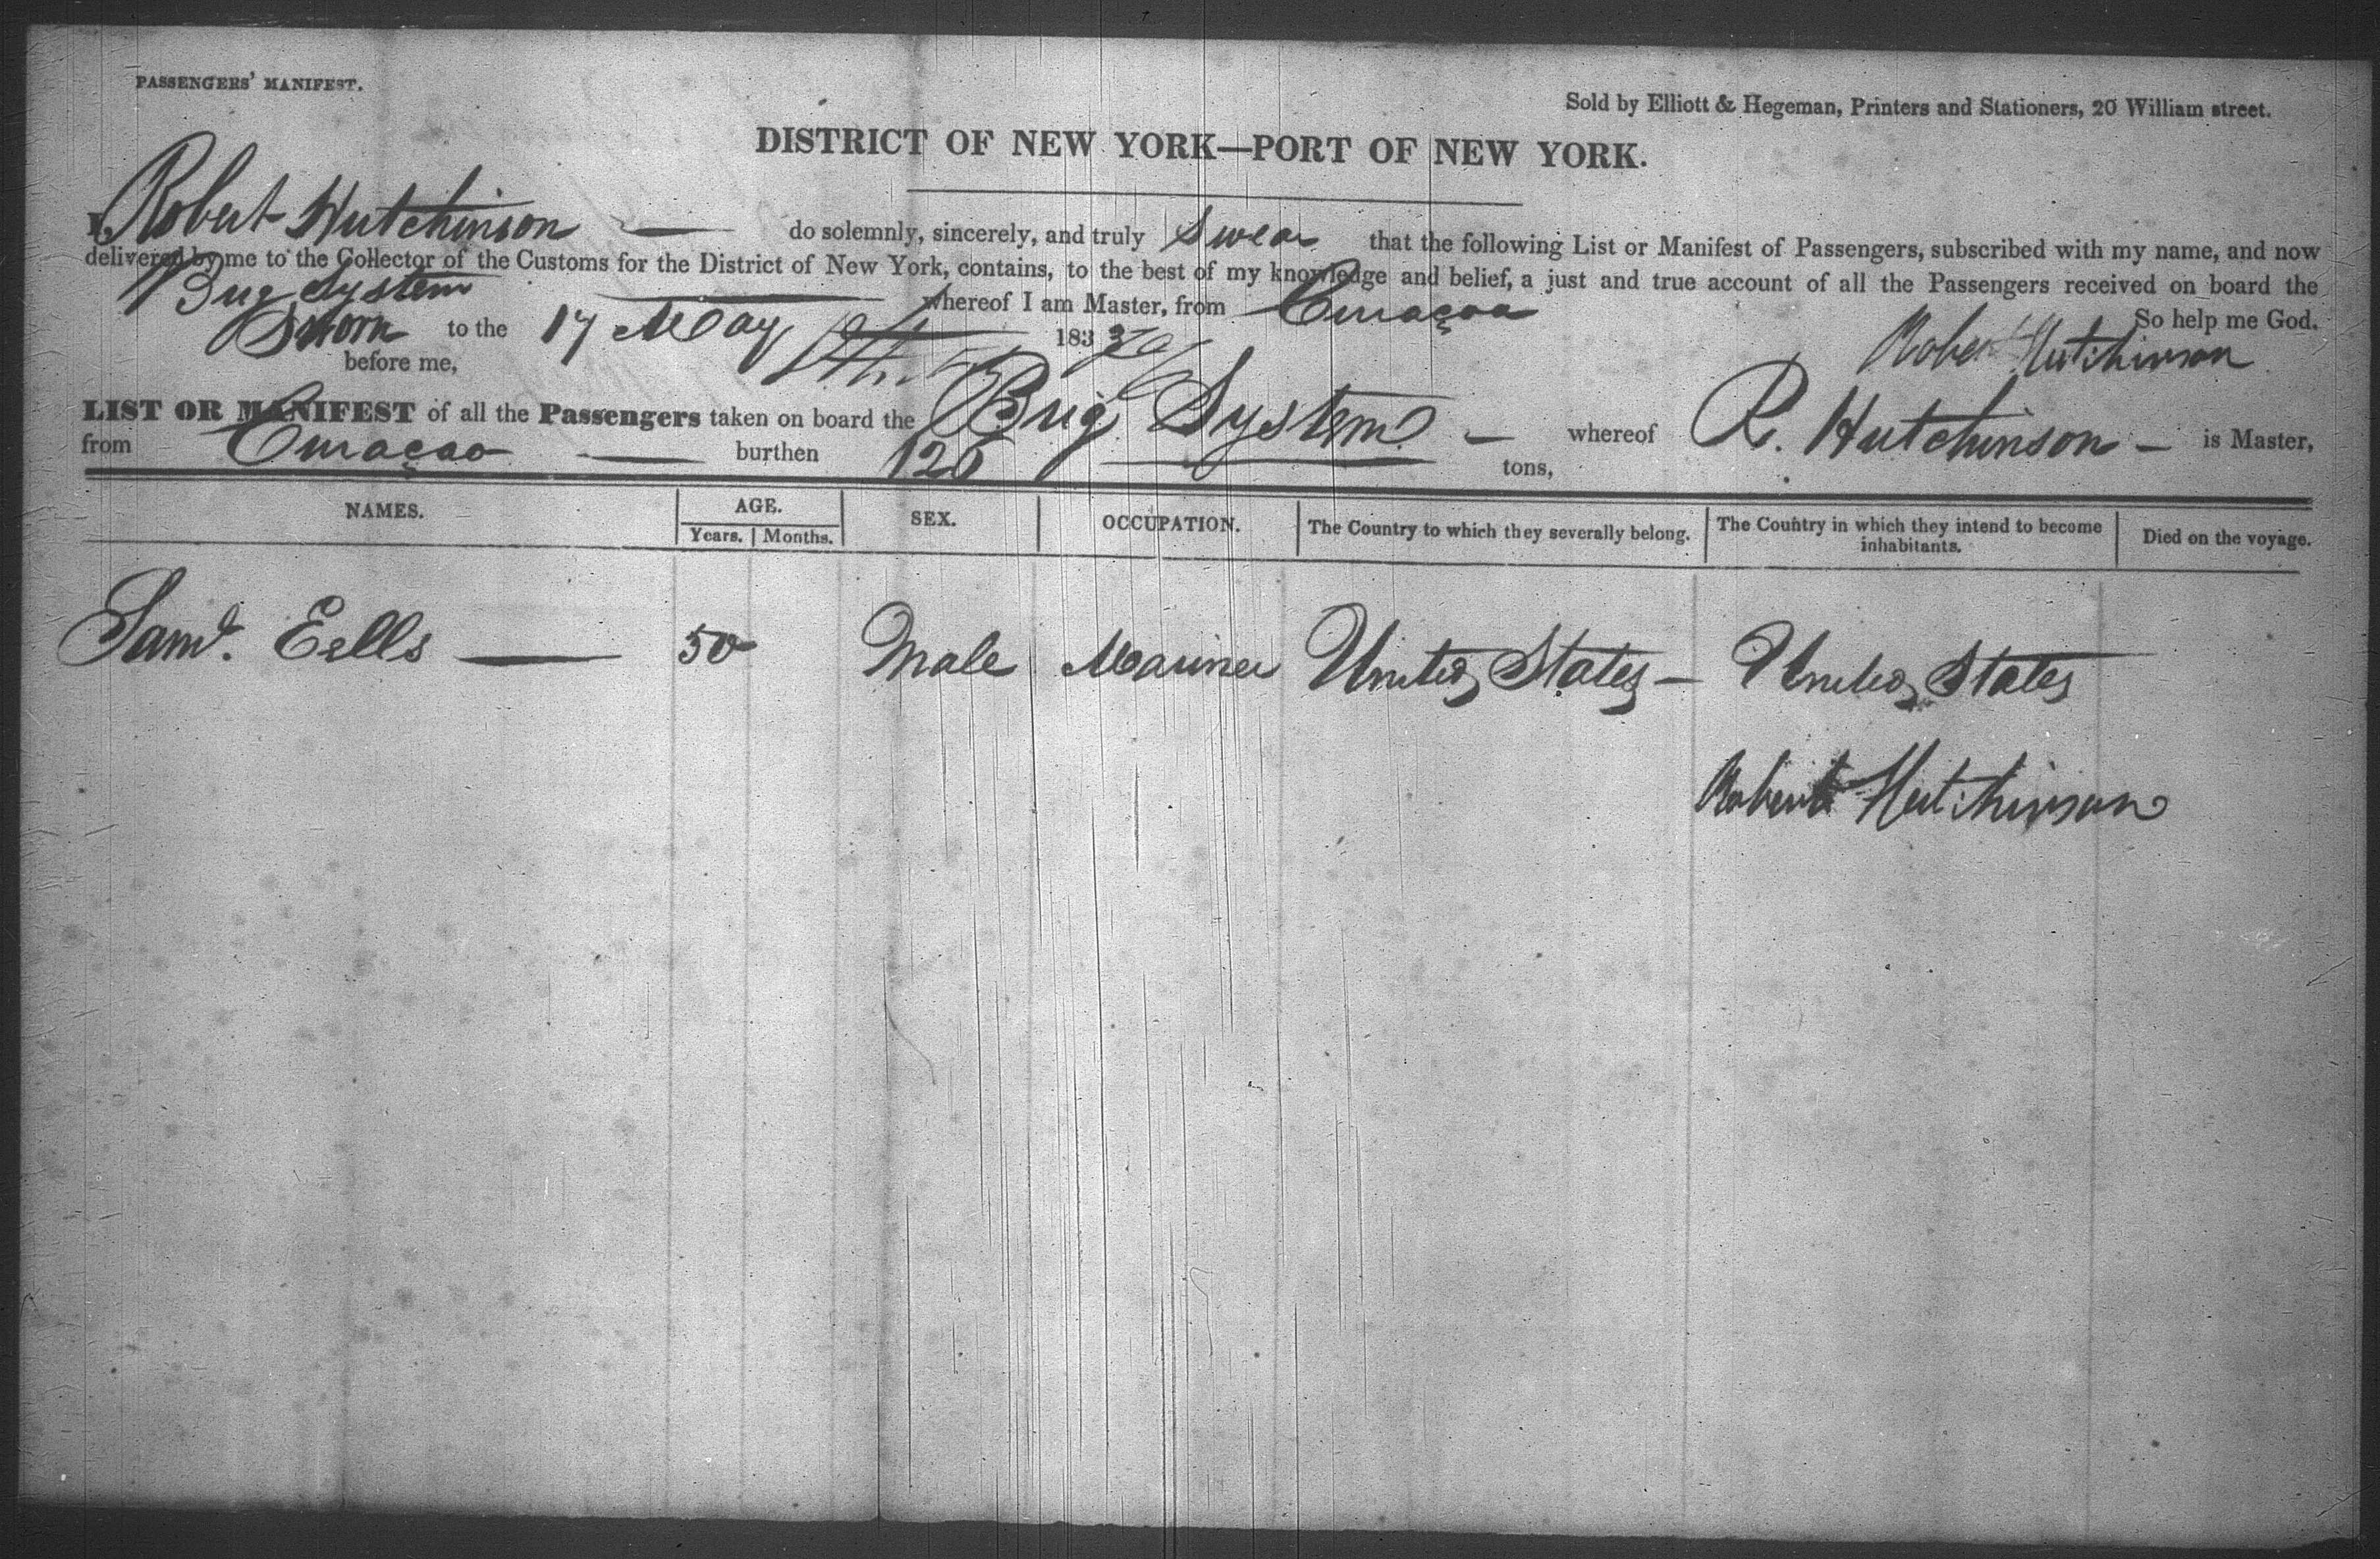 PASSENGERS' MANIFEST.
Sold by Elliott & Hegeman, Printers and Stationers, 20 William street.
DISTRICT OF NEW YORK—PORT OF NEW YORK.
I, Robert Hutchinson do solemnly, sincerely, and truly Swear that the following List or Manifest of Passengers, subscribed with my name, and now
delivered by me to the Collector of the Customs for the District of New York, contains, to the best of my knowledge and belief, a just and true account of all the Passengers received on board the
Brig System whereof I am Master, from Curaçoa
So help me God.
Sworn to the 17 May 183
before me,
Robert Hutchinson
LIST OR MANIFEST of all the Passengers taken on board the Brig System whereof R. Hutchinson is Master,
from Curaçao burthen tons,
NAMES. AGE. SEX. OCCUPATION. The Country to which they severally belong. The Country in which they intend to become inhabitants. Died on the voyage.
Years. Months.
Saml. Eells 50 Male Mariner United States United States
Robert Hutchinson